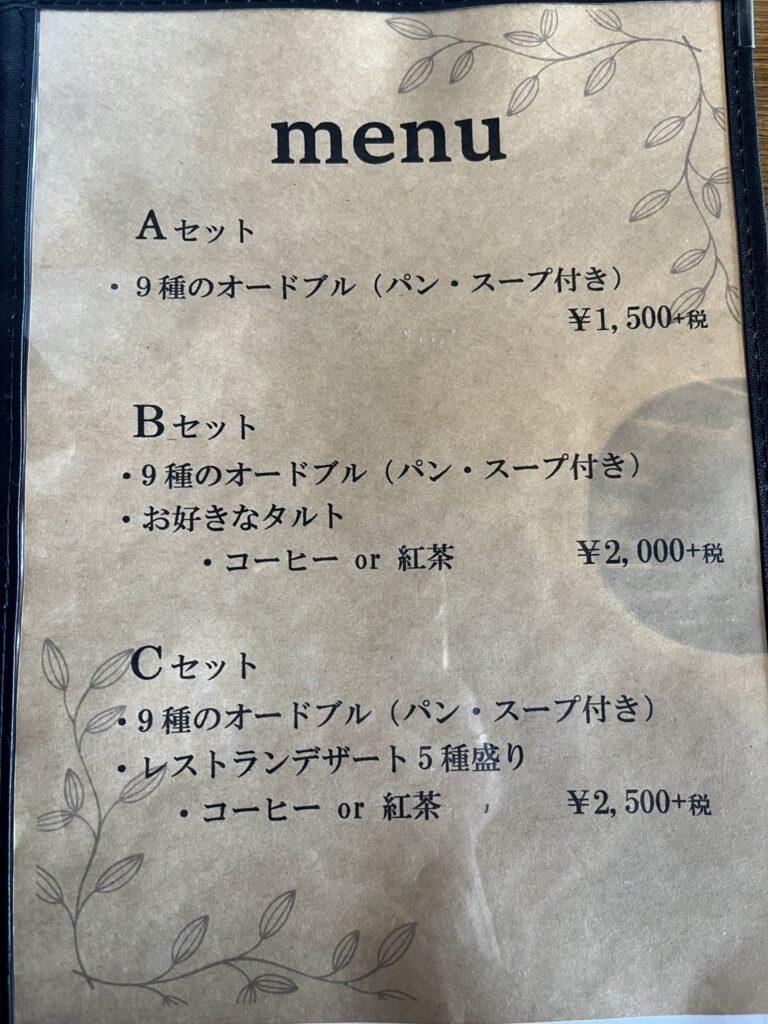 menu
Aセット
・9種のオードブル（パン・スープ付き）
¥1,500+税
Bセット
・9種のオードブル（パン・スープ付き）
・お好きなタルト
・コーヒー or 紅茶 ¥2,000+税
Cセット
・9種のオードブル（パン・スープ付き）
・レストランデザート5種盛り
・コーヒー or 紅茶 ¥2,500+税